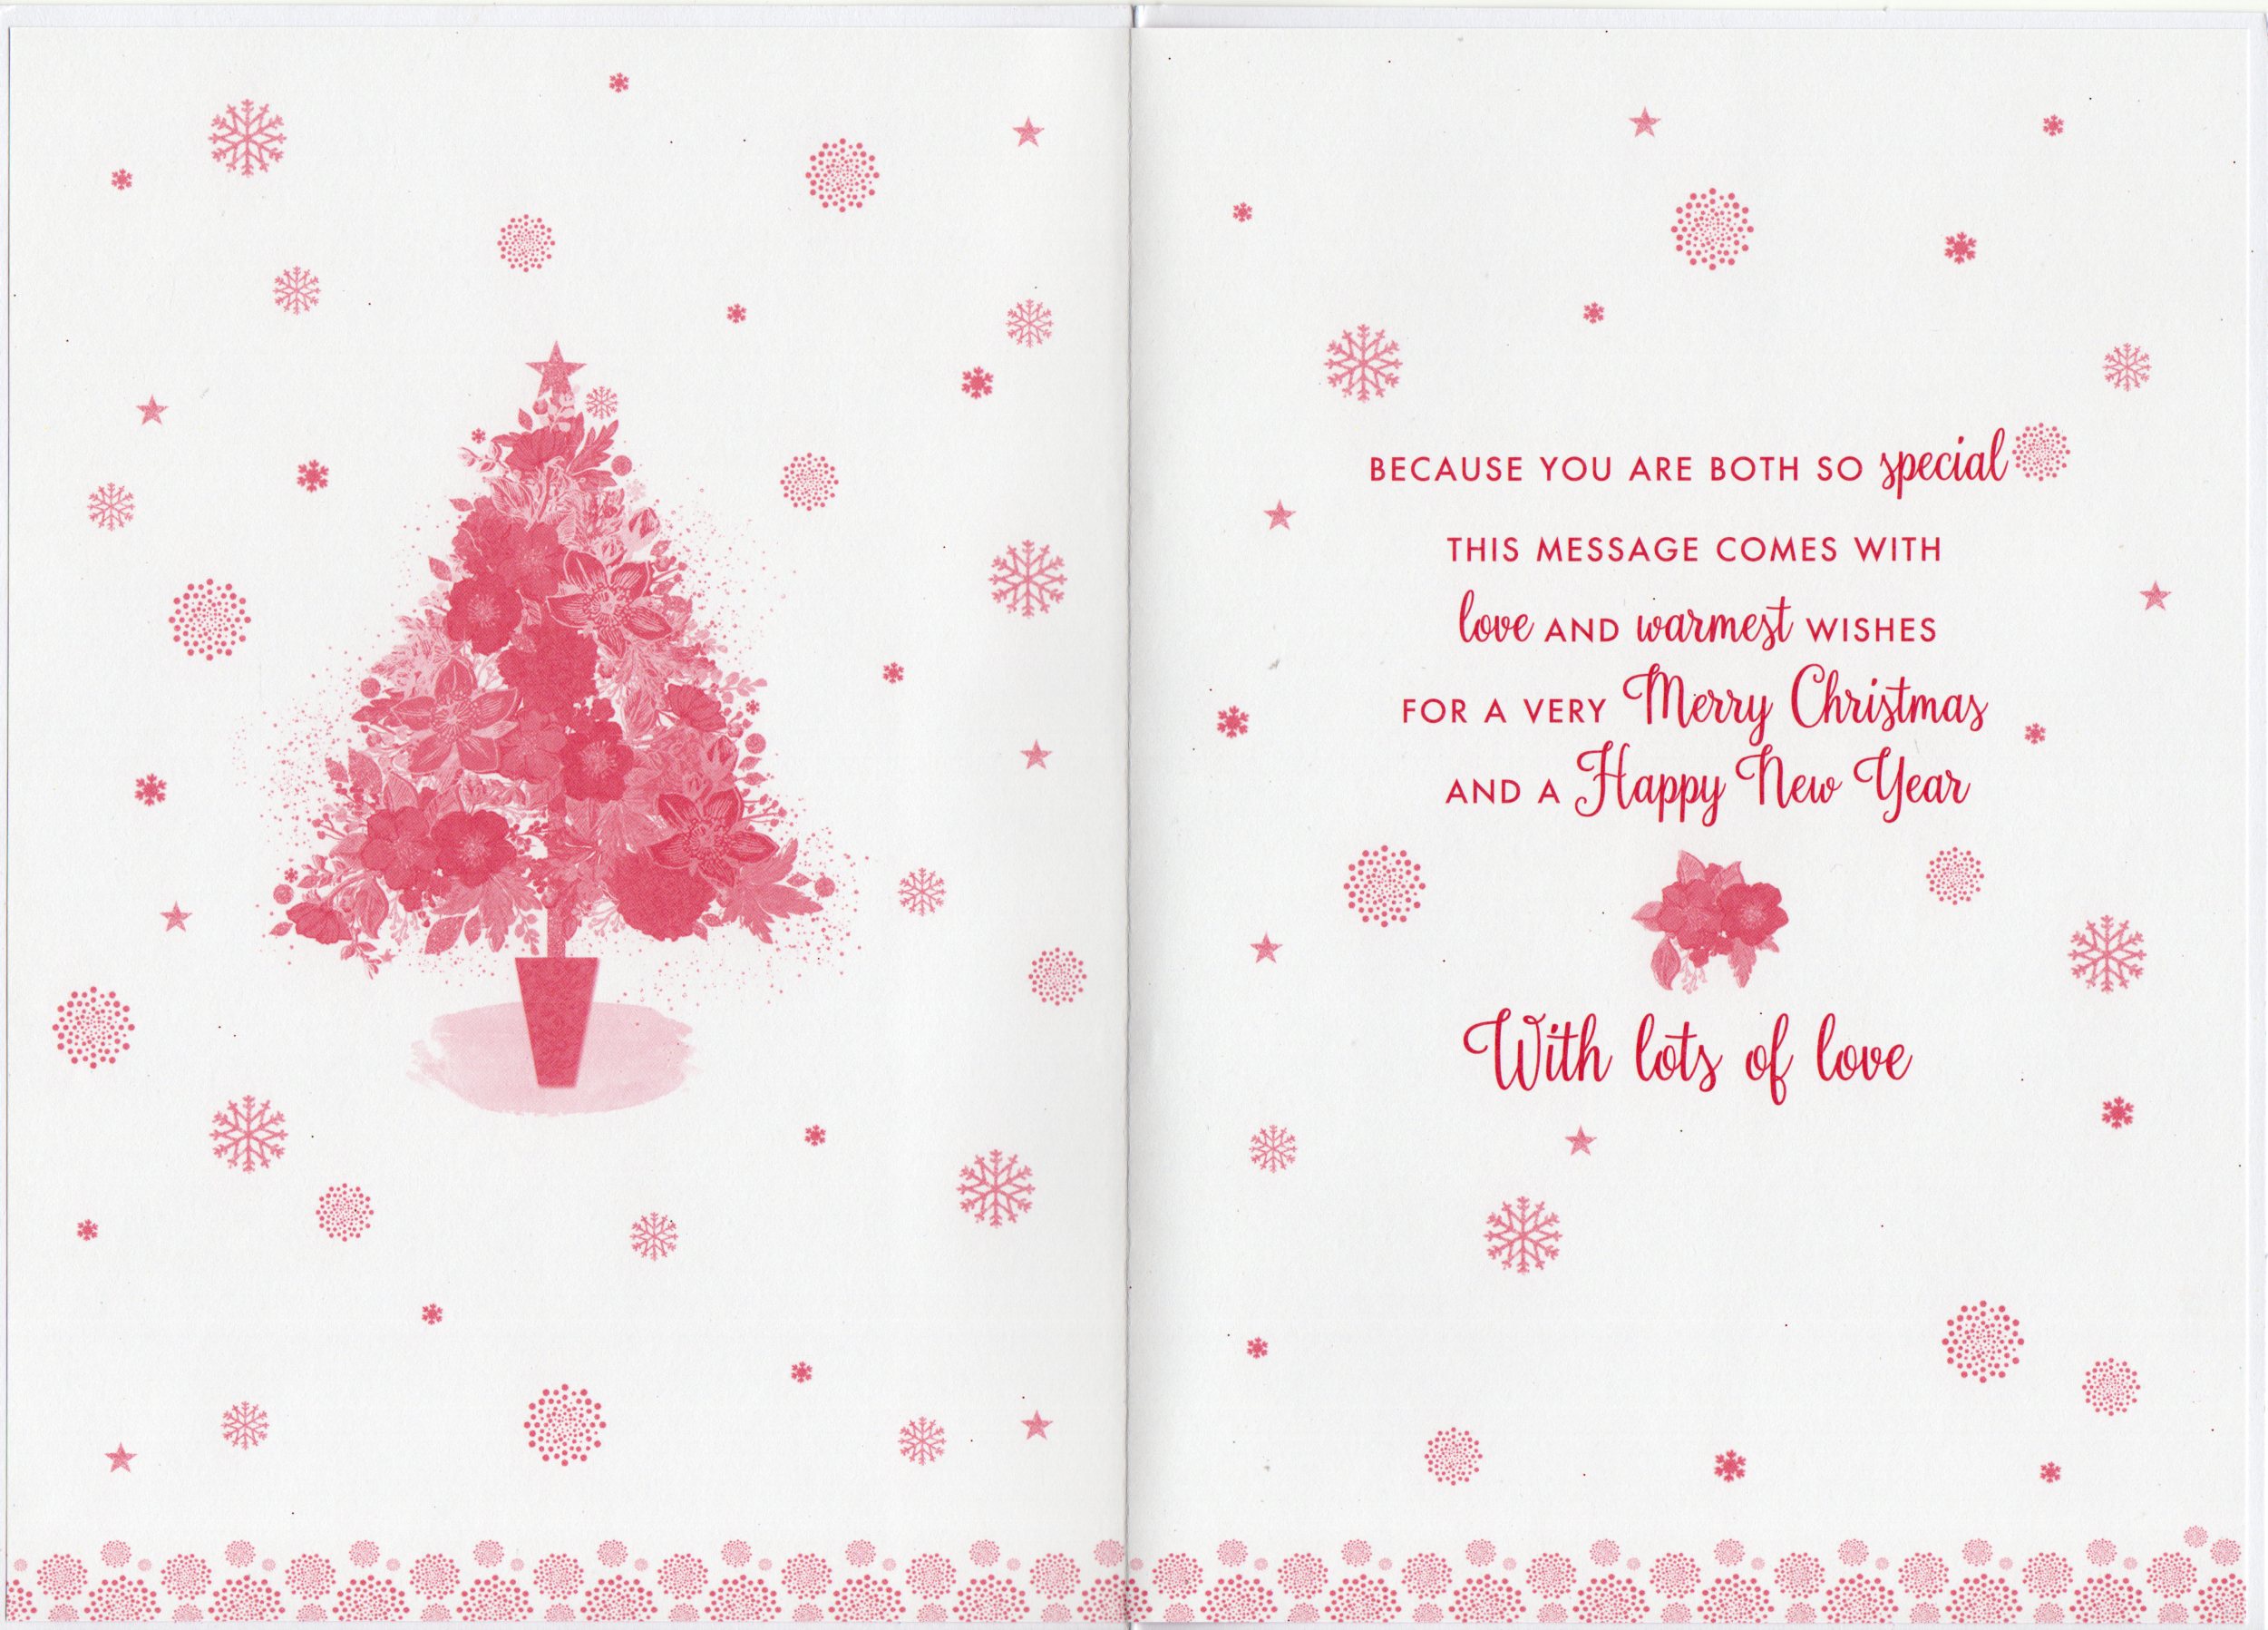 BECAUSE YOU ARE BOTH SO special
THIS MESSAGE COMES WITH
love AND warmest WISHES
FOR A VERY Merry Christmas
AND A Happy New Year
With lots of love